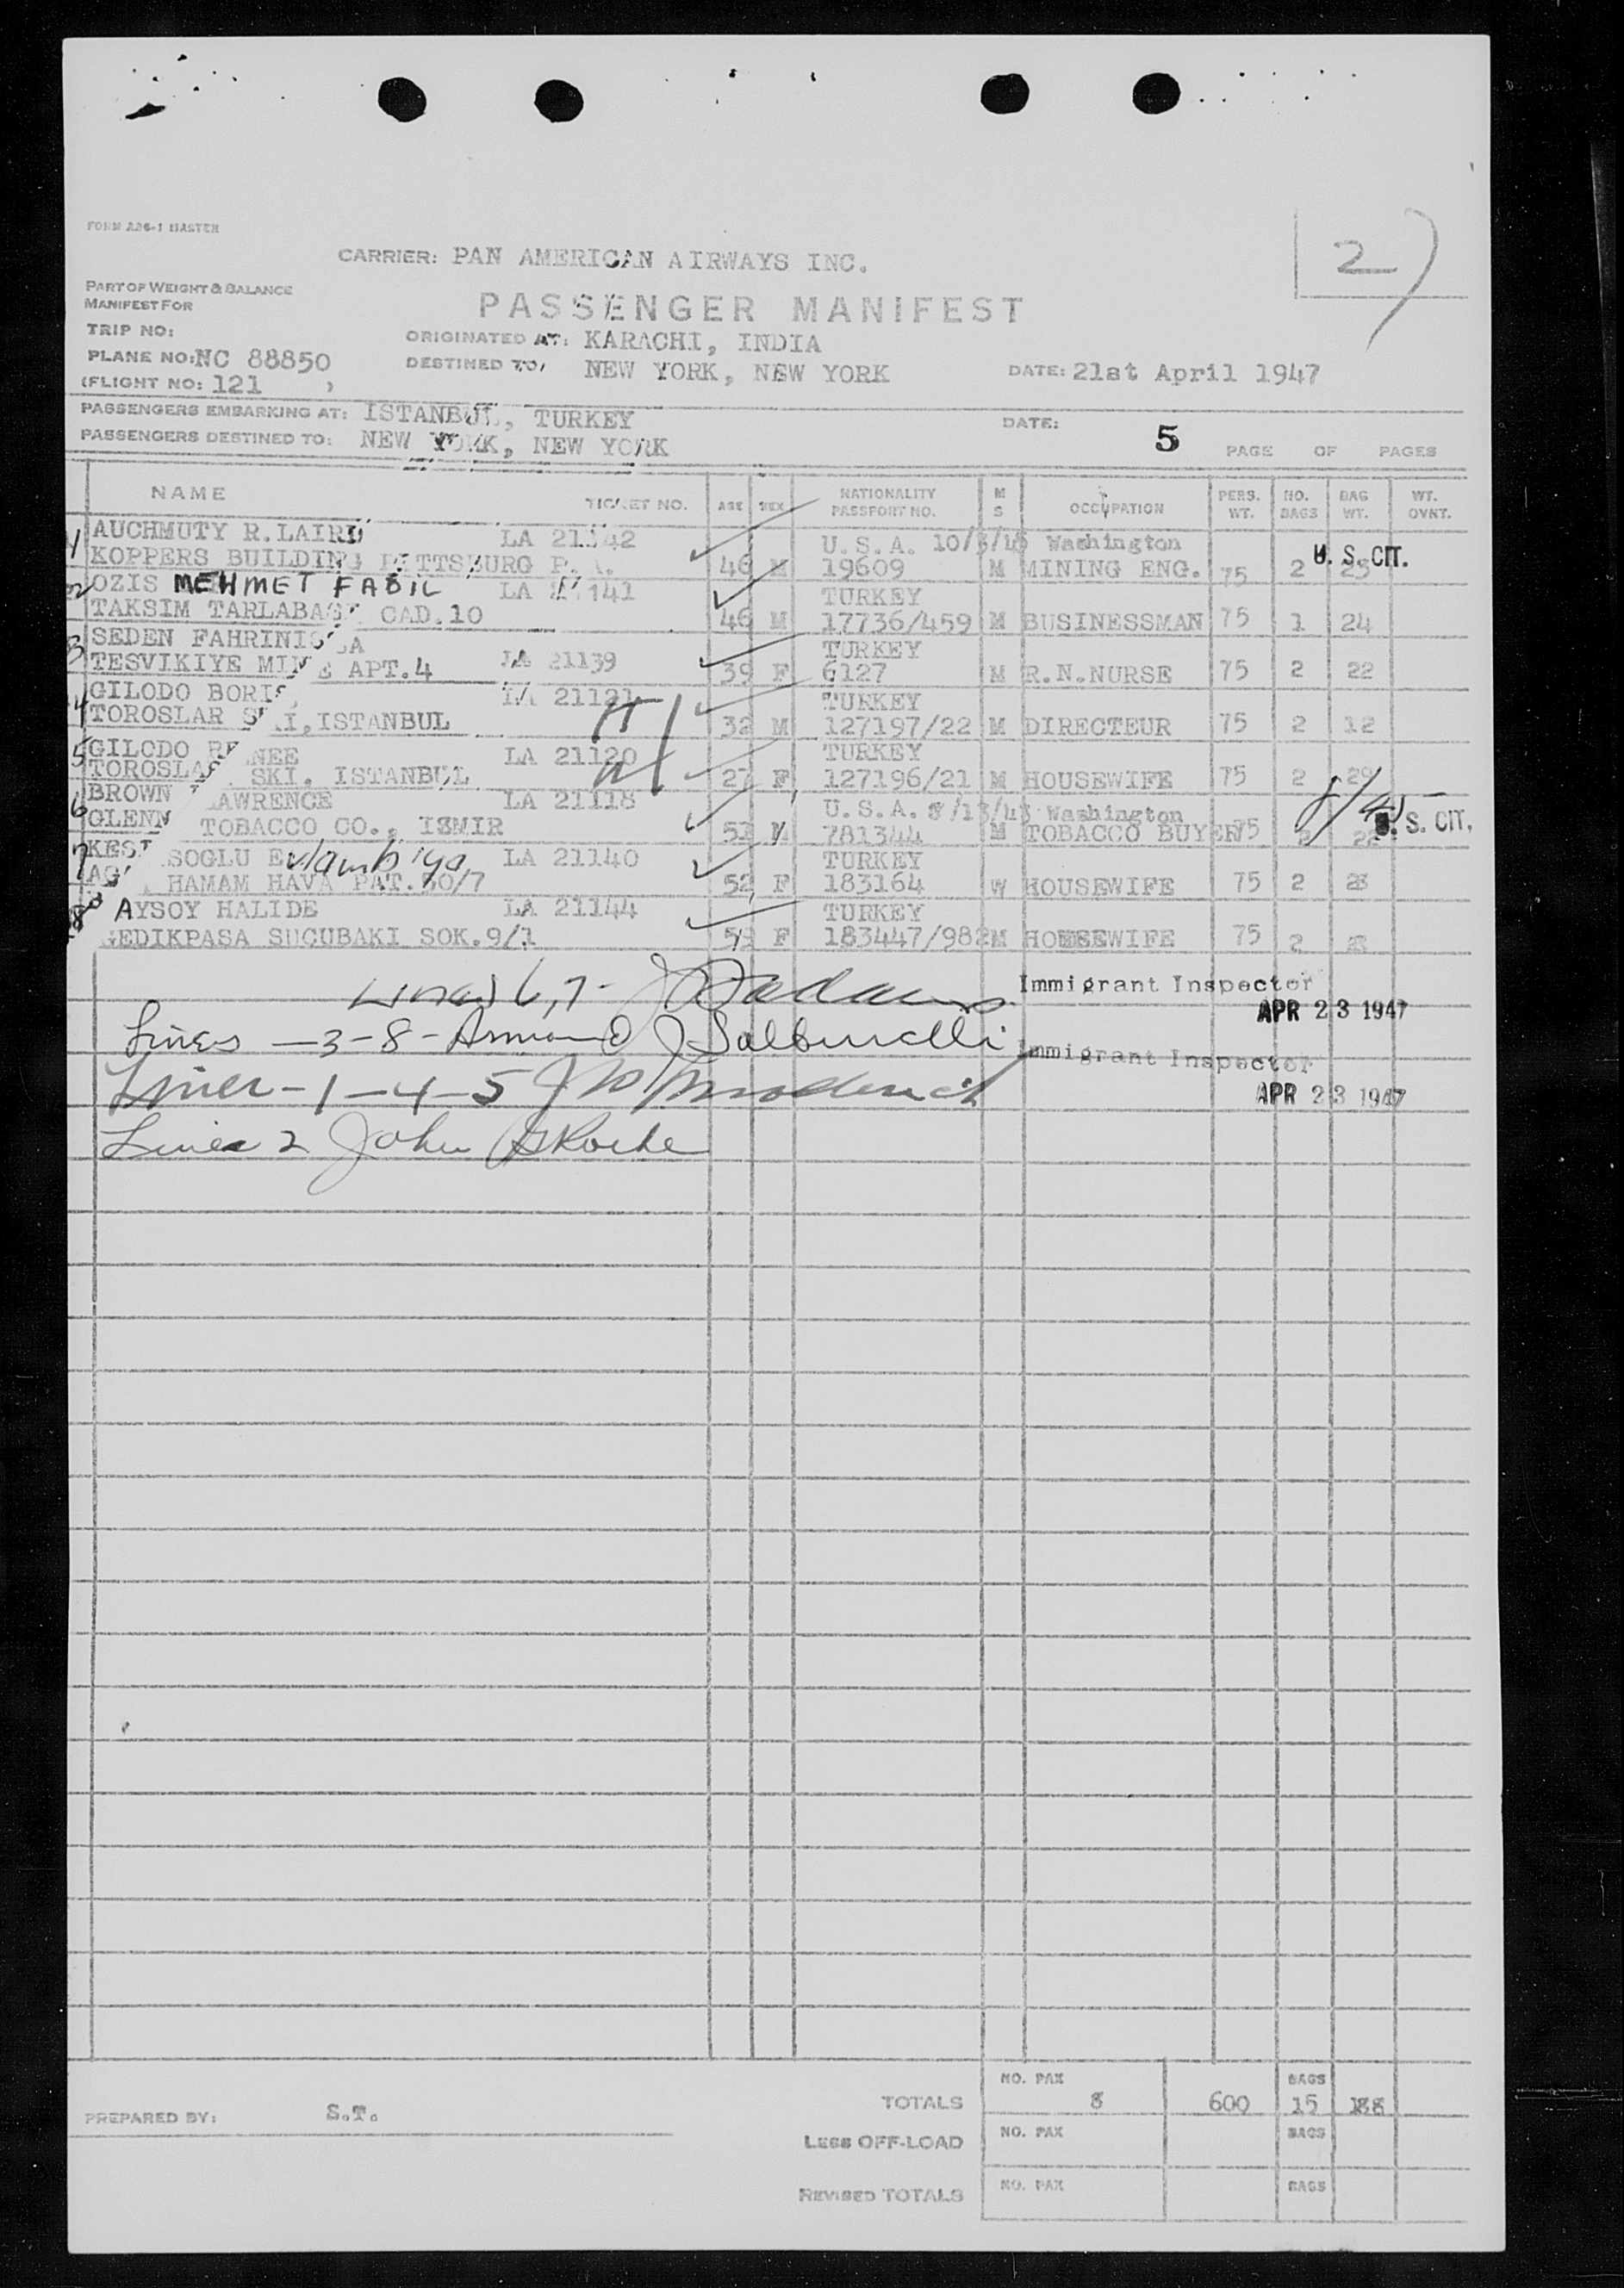 FORM A26-1 MASTER
2
CARRIER: PAN AMERICAN AIRWAYS INC.
PART OF WEIGHT & BALANCE
MANIFEST FOR
PASSENGER MANIFEST
TRIP NO:
ORIGINATED AT: KARACHI, INDIA
PLANE NO: NC 88850
DESTINED TO: NEW YORK, NEW YORK
DATE: 21st April 1947
(FLIGHT NO: 121 )
PASSENGERS EMBARKING AT: ISTANBUL, TURKEY
DATE:
PASSENGERS DESTINED TO: NEW YORK, NEW YORK
5 PAGE OF PAGES
NAME TICKET NO. AGE SEX NATIONALITY PASSPORT NO. M S OCCUPATION PERS. WT. NO. BAGS BAG WT. WT. OVNT.
1 AUCHMUTY R.LAIRD LA 21142 U.S.A. Washington
KOPPERS BUILDING PITTSBURG P.A. 46 M 19609 M MINING ENG. 75 2 U. S. CIT.
2 OZIS MEHMET FABIL LA 21141 TURKEY
TAKSIM TARLABASI CAD.10 46 M 17736/459 M BUSINESSMAN 75 1 24
3 SEDEN FAHRINISSA TURKEY
TESVIKIYE MINE APT.4 LA 21139 39 F 6127 M R.N.NURSE 75 2 22
4 GILODO BORIS LA 21121 TURKEY
TOROSLAR SKI, ISTANBUL 32 M 127197/22 M DIRECTEUR 75 2 12
5 GILODO RENEE LA 21120 TURKEY
TOROSLAR SKI. ISTANBUL 27 F 127196/21 M HOUSEWIFE 75 2 29
6 BROWN LAWRENCE LA 21118 U.S.A. Washington
GLENN TOBACCO CO., IZMIR M 781344 M TOBACCO BUYER 75 2 22 U. S. CIT.
7 SOGLU LA 21140 TURKEY
HAMAM HAVA PAT.30/7 52 F 183164 W HOUSEWIFE 75 2
8 AYSOY HALIDE LA 21144 TURKEY
GEDIKPASA SUCUBAKI SOK.9/1 F 183447/982 M HOUSEWIFE 75 2
Lines 6,7-
Immigrant Inspector
APR 23 1947
Lines -3-8-
Immigrant Inspector
APR 23 1947
Lines -1-4-5
Lines 2 John
TOTALS NO. PAX 8 600 BAGS 15 188
PREPARED BY: S.T.
LESS OFF-LOAD NO. PAX BAGS
REVISED TOTALS NO. PAX BAGS